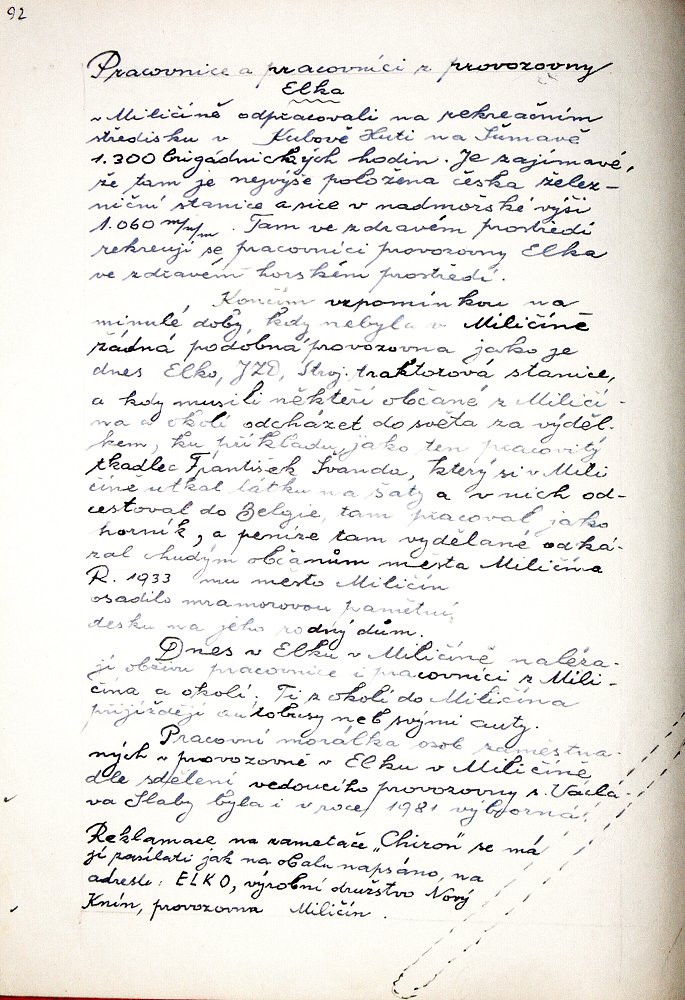 92
Pracovnice a pracovníci z provozovny
Elka
v Miličíně odpracovali na rekreačním
středisku v Kubově Huti na Šumavě
1.300 brigádnických hodin. Je zajímavé,
že tam je nejvýše položena česka želez-
niční stanice a sice v nadmořské výši
1.060 m/n/m. Tam ve zdravém prostředí
rekreují se pracovníci provozovny Elka
ve zdravém horském prostředí.
Končím vzpomínkou na
minulé doby, kdy nebyla v Miličíně
žádná podobná provozovna jako je
dnes Elko, JZD, Stroj. traktorová stanice,
a kdy musili někteří občané z Miličí-
na a okolí odcházet do světa za výděl-
kem, ku příkladu jako ten pracovitý
tkadlec František Švanda, který si v Mili
číně utkal látku na šaty a v nich od-
cestoval do Belgie, tam pracoval jako
horník, a peníze tam vydělané odká-
zal chudým občanům města Miličína
R. 1933 mu město Miličín
osadilo mramorovou pamětní
desku na jeho rodný dům.
Dnes v Elku v Miličíně naléza-
jí obživu pracovnice i pracovníci z Mili-
čína a okolí. Ti z okolí do Miličína
přijíždějí autobusy neb svými auty.
Pracovní morálka osob zaměstna-
ných v provozovně v Elku v Miličíně,
dle sdělení vedoucího provozovny s. Václa-
va Slaby byla i v roce 1981 výborná.
Reklamace na rametače „Chiron" se má
jí zasílati jak na obalu napsáno, na
adresu: ELKO, výrobní družstvo Nový
Knín, provozovna Miličín.